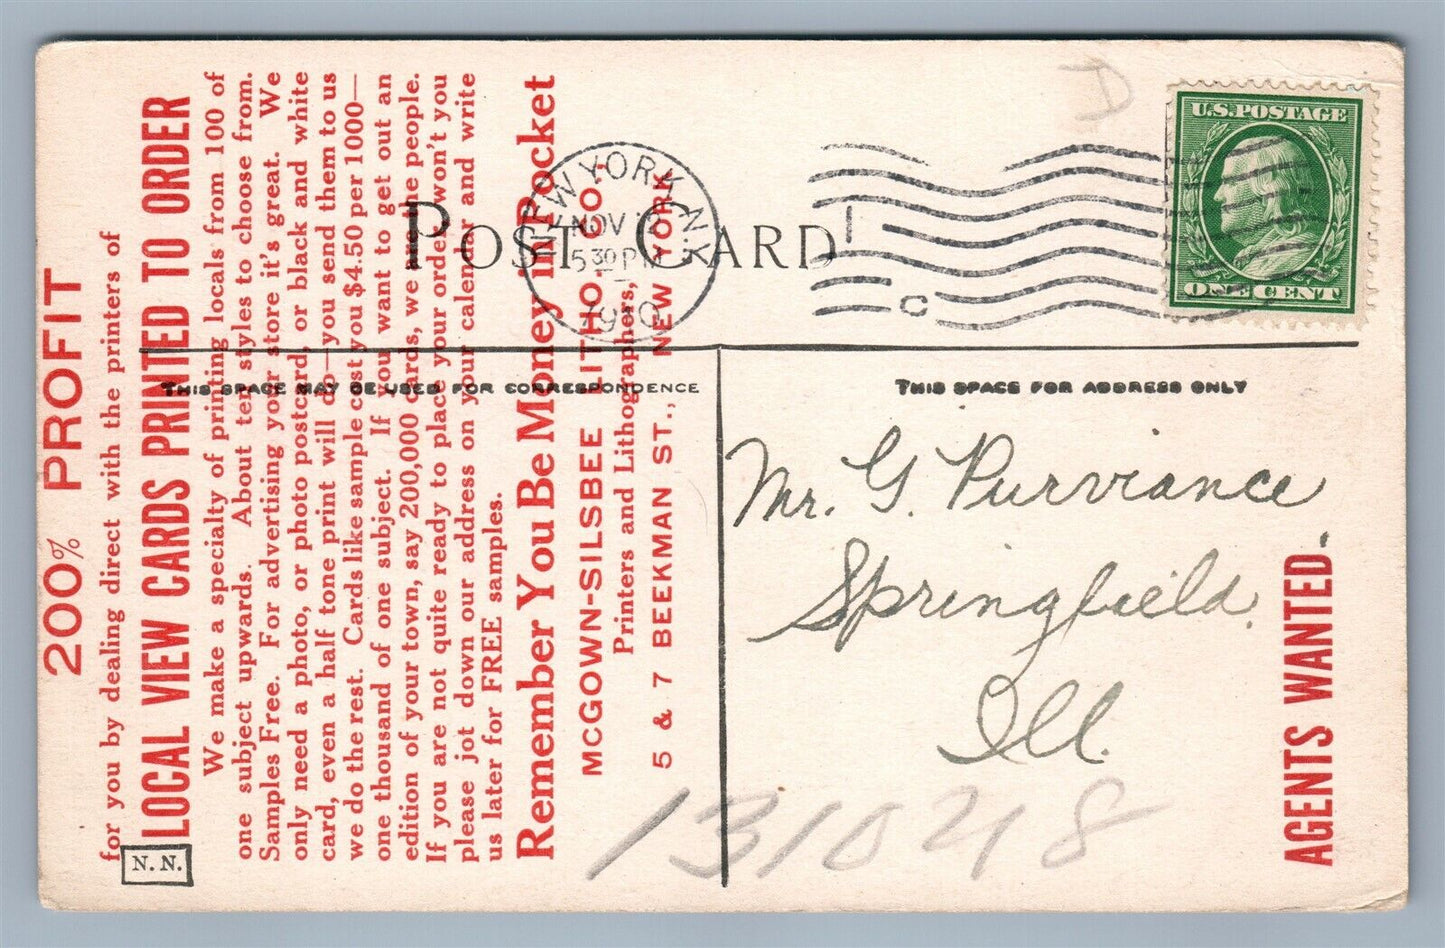 200% PROFIT
for you by dealing direct with the printers of
LOCAL VIEW CARDS PRINTED TO ORDER
We make a specialty of printing locals from 100 of
one subject upwards. About ten styles to choose from.
Samples Free. For advertising your store it's great. We
only need a photo, or photo postcard, or black and white
card, even a half tone print will do—you send them to us
we do the rest. Cards like sample cost you $4.50 per 1000—
one thousand of one subject. If you want to get out an
edition of your town, say 200,000 cards, we are the people.
If you are not quite ready to place your order, won't you
please jot down our address on your calendar and write
us later for FREE samples.
Remember You Be Money in Pocket
MCGOWN-SILSBEE LITHO. CO.,
Printers and Lithographers,
5 & 7 BEEKMAN ST., NEW YORK
POST CARD
NEW YORK, N.Y.
NOV
5 30 PM
1910
C
D
U.S. POSTAGE
ONE CENT
THIS SPACE MAY BE USED FOR CORRESPONDENCE
THIS SPACE FOR ADDRESS ONLY
Mr. G. Purviance
Springfield.
Ill.
131048
AGENTS WANTED.
N. N.